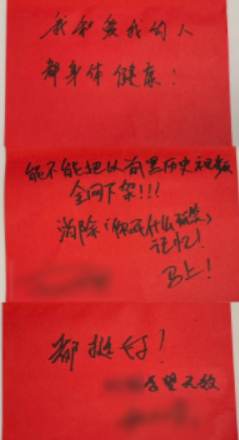 我和爱我的人
都身体健康!
能不能把以前黑历史视频
全网下架!!!
消除「你开什么玩笑」
记忆!
马上!
都挺好!